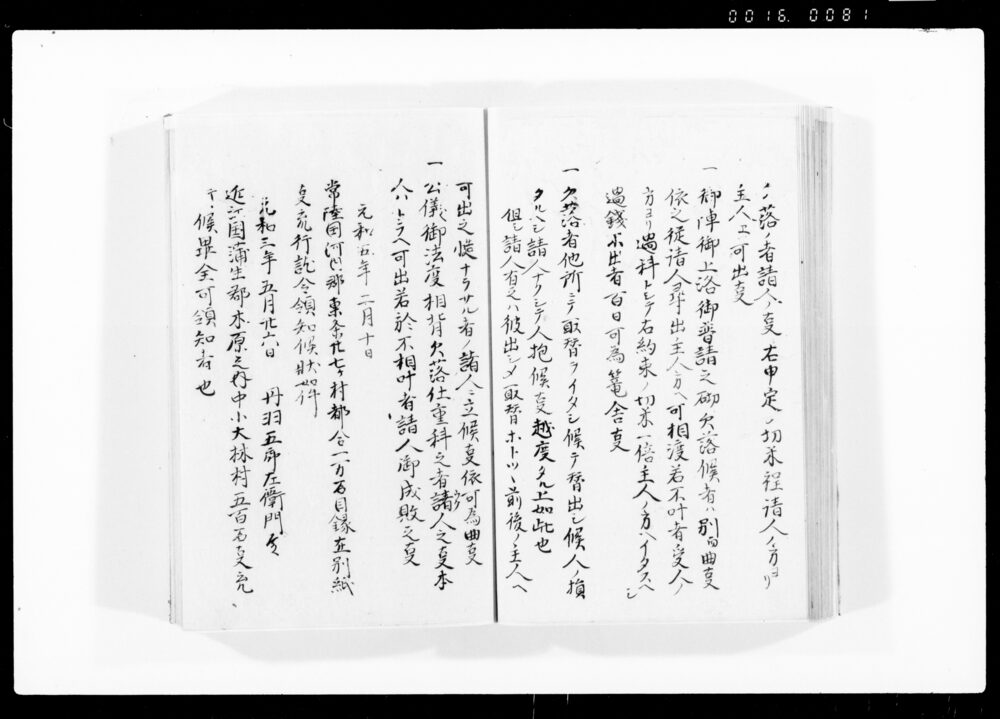 0016. 0081
欠落ノ者請人ノ叓右申定ノ切米程請人ノ方ヨリ
主人エ可出叓
一 御陣御上洛御普請之砌欠落候者ハ別而曲叓
依之従請人尋出主人方ヘ可相渡若不叶者受人ノ
方ヨリ過料トシテ右約束ノ切米一倍主人ノ方ヘイタスヘシ
過銭不出者百日可為篭舎叓
一 欠落者他所ニテ取替ヲイタシ候テ替出シ候人ノ損
タルヘシ請人ナクシテ人抱候叓越度タル上如此也
但シ請人有之ハ彼出シメ取替ホトツヽ前後ノ主人ヘ
可出之慥ナラサル者ノ請人ニ立候叓依可為曲叓
一 公儀御法度相背欠落仕重科之者請人之叓本
人ハトラヘ可出若於不相叶者請人御成敗之叓
元和五年二月十日
常陸国河内郡東条廿七ヶ村都合一万石目録在別紙
叓宛行訖令領知候状如件
元和三年五月廿六日 丹羽五郎左衛門
近江国蒲生郡木原之内中小大林村五百石叓充
下候畢全可領知者也